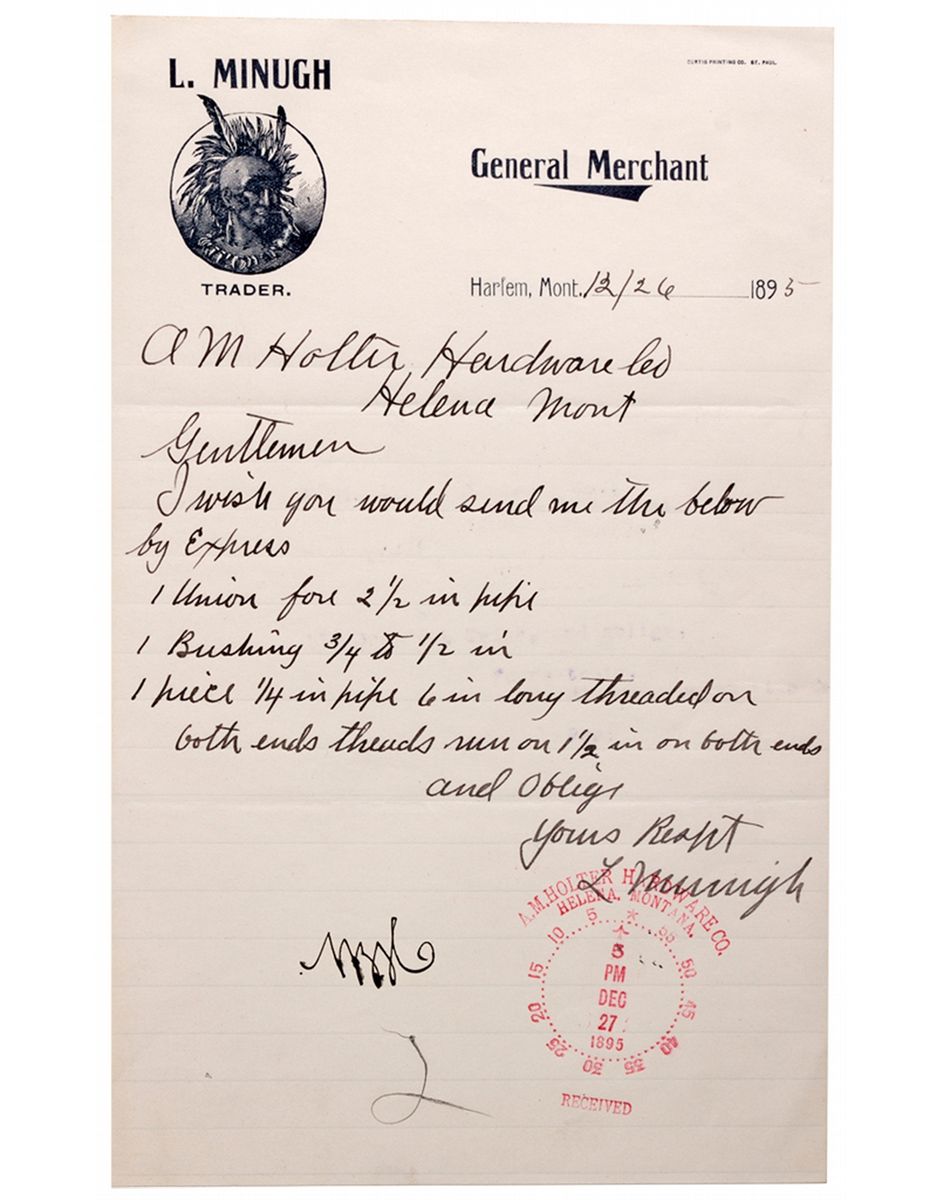 CURTIS PRINTING CO. ST. PAUL.
L. MINUGH
General Merchant
TRADER.
Harlem, Mont. 12/26 1895
A M Holter Hardware Co
Helena Mont
Gentlemen
I wish you would send me the below
by Express
1 Union fore 2 1/2 in pipe
1 Bushing 3/4 to 1/2 in
1 piece 1/4 in pipe 6 in long threaded on
both ends theads run on 1 1/2 in on both ends
and Oblige
Yours Respt
L Minugh
A.M. HOLTER HARDWARE CO.
HELENA, MONTANA.
5 10 15 20 25 30 35 40 45 50 55
5
PM
DEC
27
1895
RECEIVED